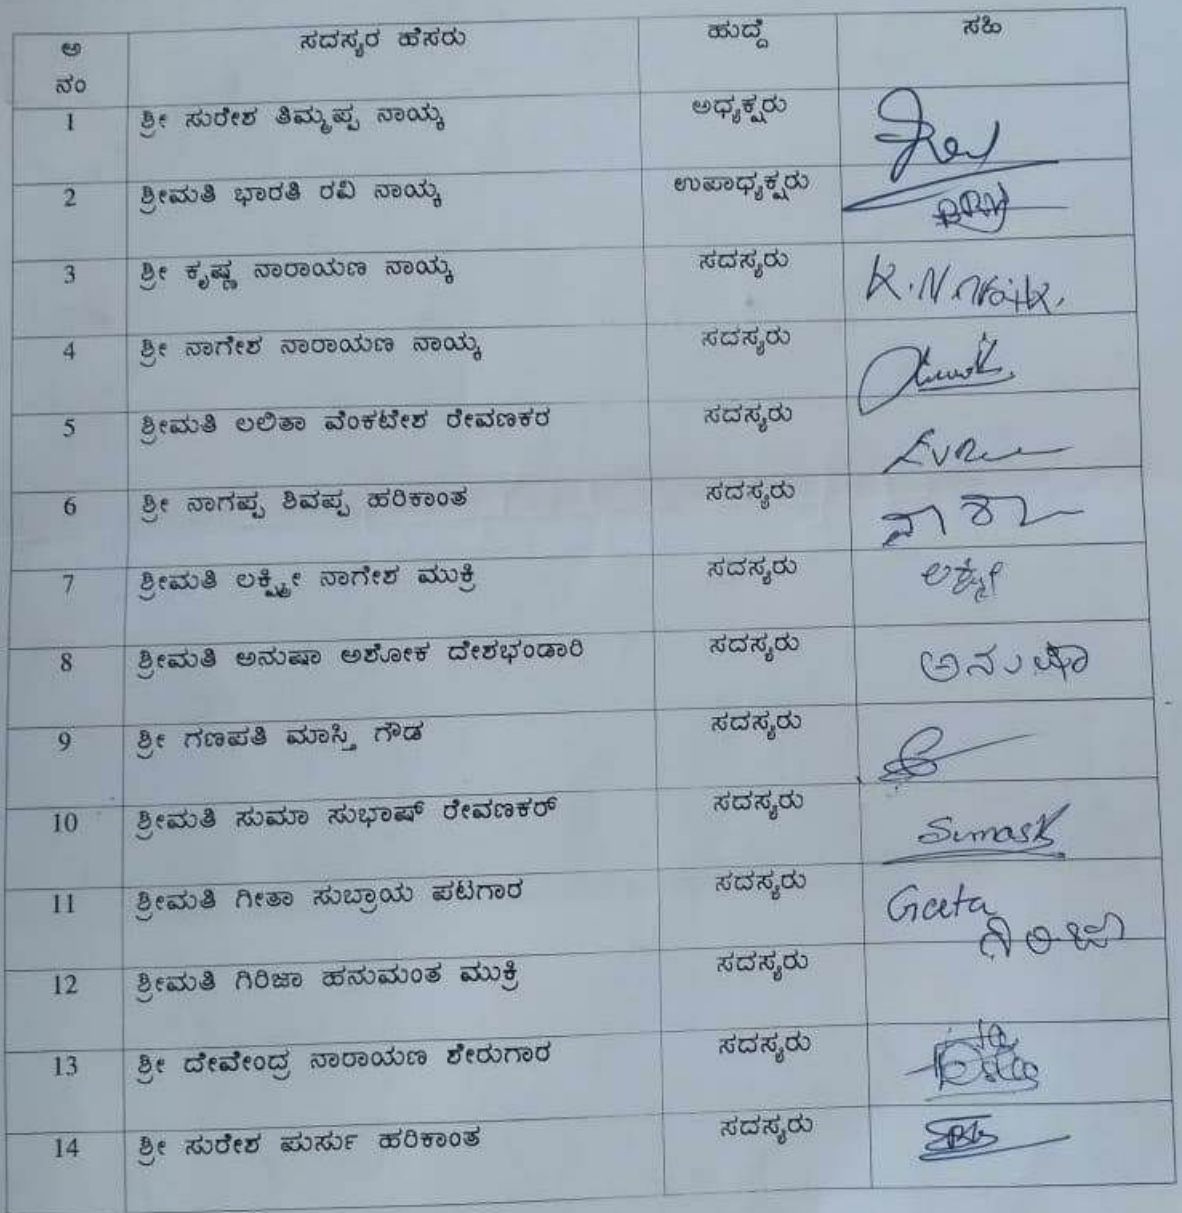 ಅ ಸದಸ್ಯರ ಹೆಸರು ಹುದ್ದೆ ಸಹಿ
ನಂ
1 ಶ್ರೀ ಸುರೇಶ ತಿಮ್ಮಪ್ಪ ನಾಯ್ಕ ಅಧ್ಯಕ್ಷರು
2 ಶ್ರೀಮತಿ ಭಾರತಿ ರವಿ ನಾಯ್ಕ ಉಪಾಧ್ಯಕ್ಷರು
3 ಶ್ರೀ ಕೃಷ್ಣ ನಾರಾಯಣ ನಾಯ್ಕ ಸದಸ್ಯರು K.N Naik.
4 ಶ್ರೀ ನಾಗೇಶ ನಾರಾಯಣ ನಾಯ್ಕ ಸದಸ್ಯರು
5 ಶ್ರೀಮತಿ ಲಲಿತಾ ವೆಂಕಟೇಶ ರೇವಣಕರ ಸದಸ್ಯರು
6 ಶ್ರೀ ನಾಗಪ್ಪ ಶಿವಪ್ಪ ಹರಿಕಾಂತ ಸದಸ್ಯರು
7 ಶ್ರೀಮತಿ ಲಕ್ಷ್ಮೀ ನಾಗೇಶ ಮುಕ್ರಿ ಸದಸ್ಯರು ಲಕ್ಷ್ಮೀ
8 ಶ್ರೀಮತಿ ಅನುಷಾ ಅಶೋಕ ದೇಶಭಂಡಾರಿ ಸದಸ್ಯರು ಅನುಷಾ
9 ಶ್ರೀ ಗಣಪತಿ ಮಾಸ್ತಿ ಗೌಡ ಸದಸ್ಯರು
10 ಶ್ರೀಮತಿ ಸುಮಾ ಸುಭಾಷ್ ರೇವಣಕರ್ ಸದಸ್ಯರು
11 ಶ್ರೀಮತಿ ಗೀತಾ ಸುಬ್ರಾಯ ಪಟಗಾರ ಸದಸ್ಯರು Geeta
ಗಿರಿಜಾ
12 ಶ್ರೀಮತಿ ಗಿರಿಜಾ ಹನುಮಂತ ಮುಕ್ರಿ ಸದಸ್ಯರು
13 ಶ್ರೀ ದೇವೇಂದ್ರ ನಾರಾಯಣ ಶೇರುಗಾರ ಸದಸ್ಯರು
14 ಶ್ರೀ ಸುರೇಶ ಪುರ್ಸು ಹರಿಕಾಂತ ಸದಸ್ಯರು